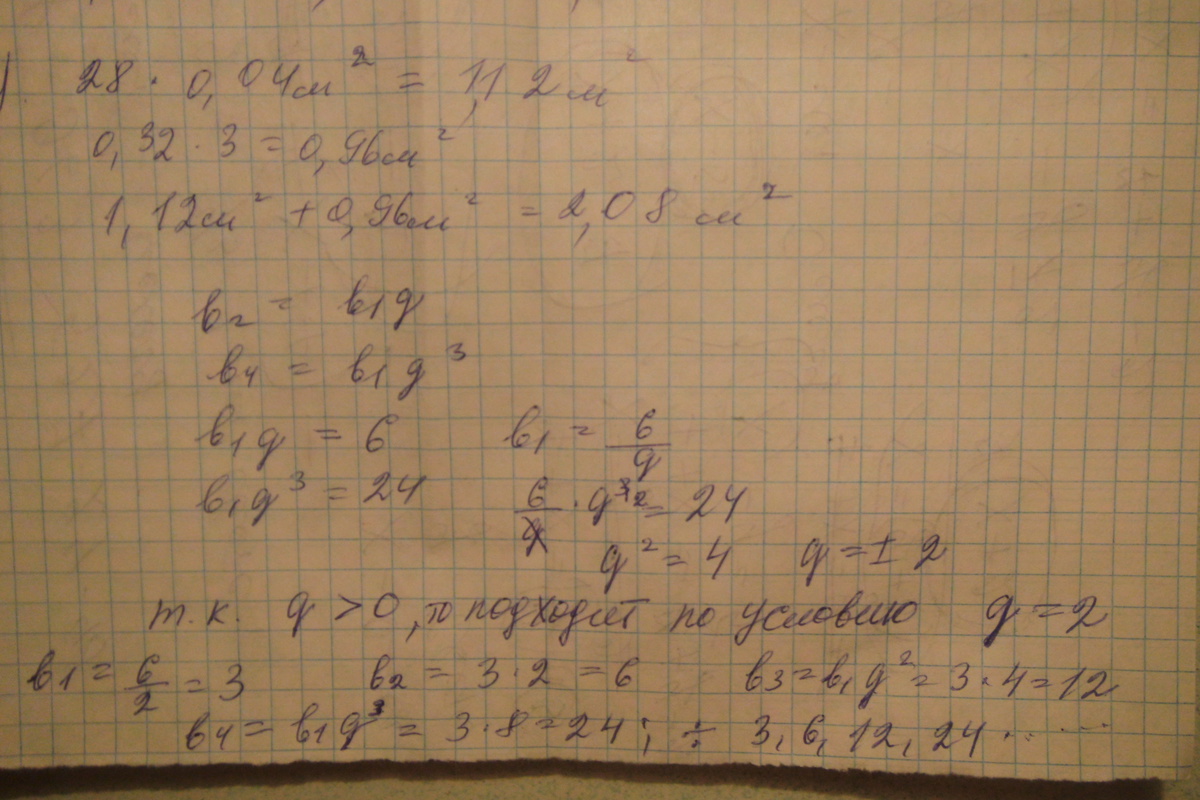 ) 28 · 0,04м² = 1,12м²
0,32 · 3 = 0,96м²
1,12м² + 0,96м² = 2,08 м²
b₂ = b₁q
b₄ = b₁q³
b₁q = 6 b₁ = 6/q
b₁q³ = 24 6/q · q³ ² = 24
q² = 4 q = ± 2
т.к. q > 0, то подходит по условию q = 2
b₁ = 6/2 = 3 b₂ = 3 · 2 = 6 b₃ = b₁q² = 3 · 4 = 12
b₄ = b₁q³ = 3 · 8 = 24 ; ÷ 3, 6, 12, 24 ......